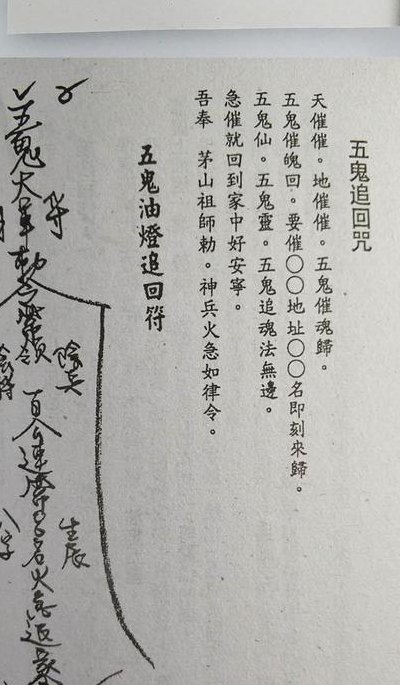 五鬼追回咒
天催催。地催催。五鬼催魂歸。
五鬼催魄回。要催〇〇地址〇〇名即刻來歸。
五鬼仙。五鬼靈。五鬼追魂法無邊。
急催就回到家中好安寧。
吾奉 茅山祖師勅。神兵火急如律令。
五鬼油燈追回符
陰兵
生辰
八字